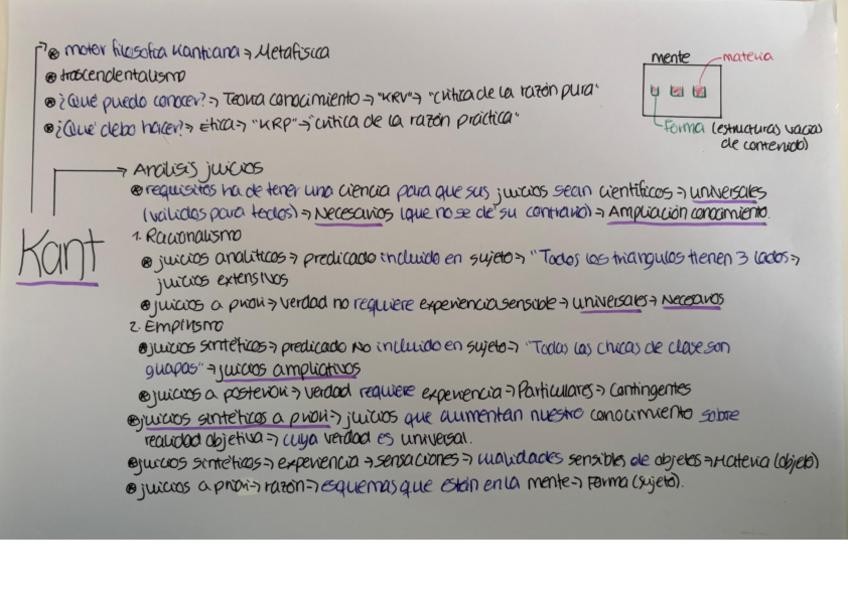 ⊛ motor filosofía kantiana → Metafísica
⊛ trascendentalismo
⊛ ¿Qué puedo conocer? → Teoría conocimiento → "KRV" → "crítica de la razón pura"
⊛ ¿Qué debo hacer? → Ética → "KRP" → "crítica de la razón práctica"
mente
materia
Forma (estructuras vacías
de contenido)
Kant
Análisis juicios
⊛ requisitos ha de tener una ciencia para que sus juicios sean científicos → universales
(válidos para todos) → Necesarios (que no se dé su contrario) → Ampliación conocimiento.
1. Racionalismo
⊛ juicios analíticos → predicado incluido en sujeto → "Todos los triangulos tienen 3 lados →
juicios extensivos
⊛ juicios a priori → verdad no requiere experiencia sensible → universales → Necesarios
2. Empirismo
⊛ juicios sintéticos → predicado NO incluido en sujeto → "Todas las chicas de clase son
guapas" → juicios ampliativos
⊛ juicios a posteriori → verdad requiere experiencia → Particulares → Contingentes
⊛ juicios sintéticos a priori → juicios que aumentan nuestro conocimiento sobre
realidad objetiva → cuya verdad es universal.
⊛ juicios sintéticos → experiencia → sensaciones → cualidades sensibles de objetos → Materia (objeto)
⊛ juicios a priori → razón → esquemas que están en la mente → Forma (sujeto).